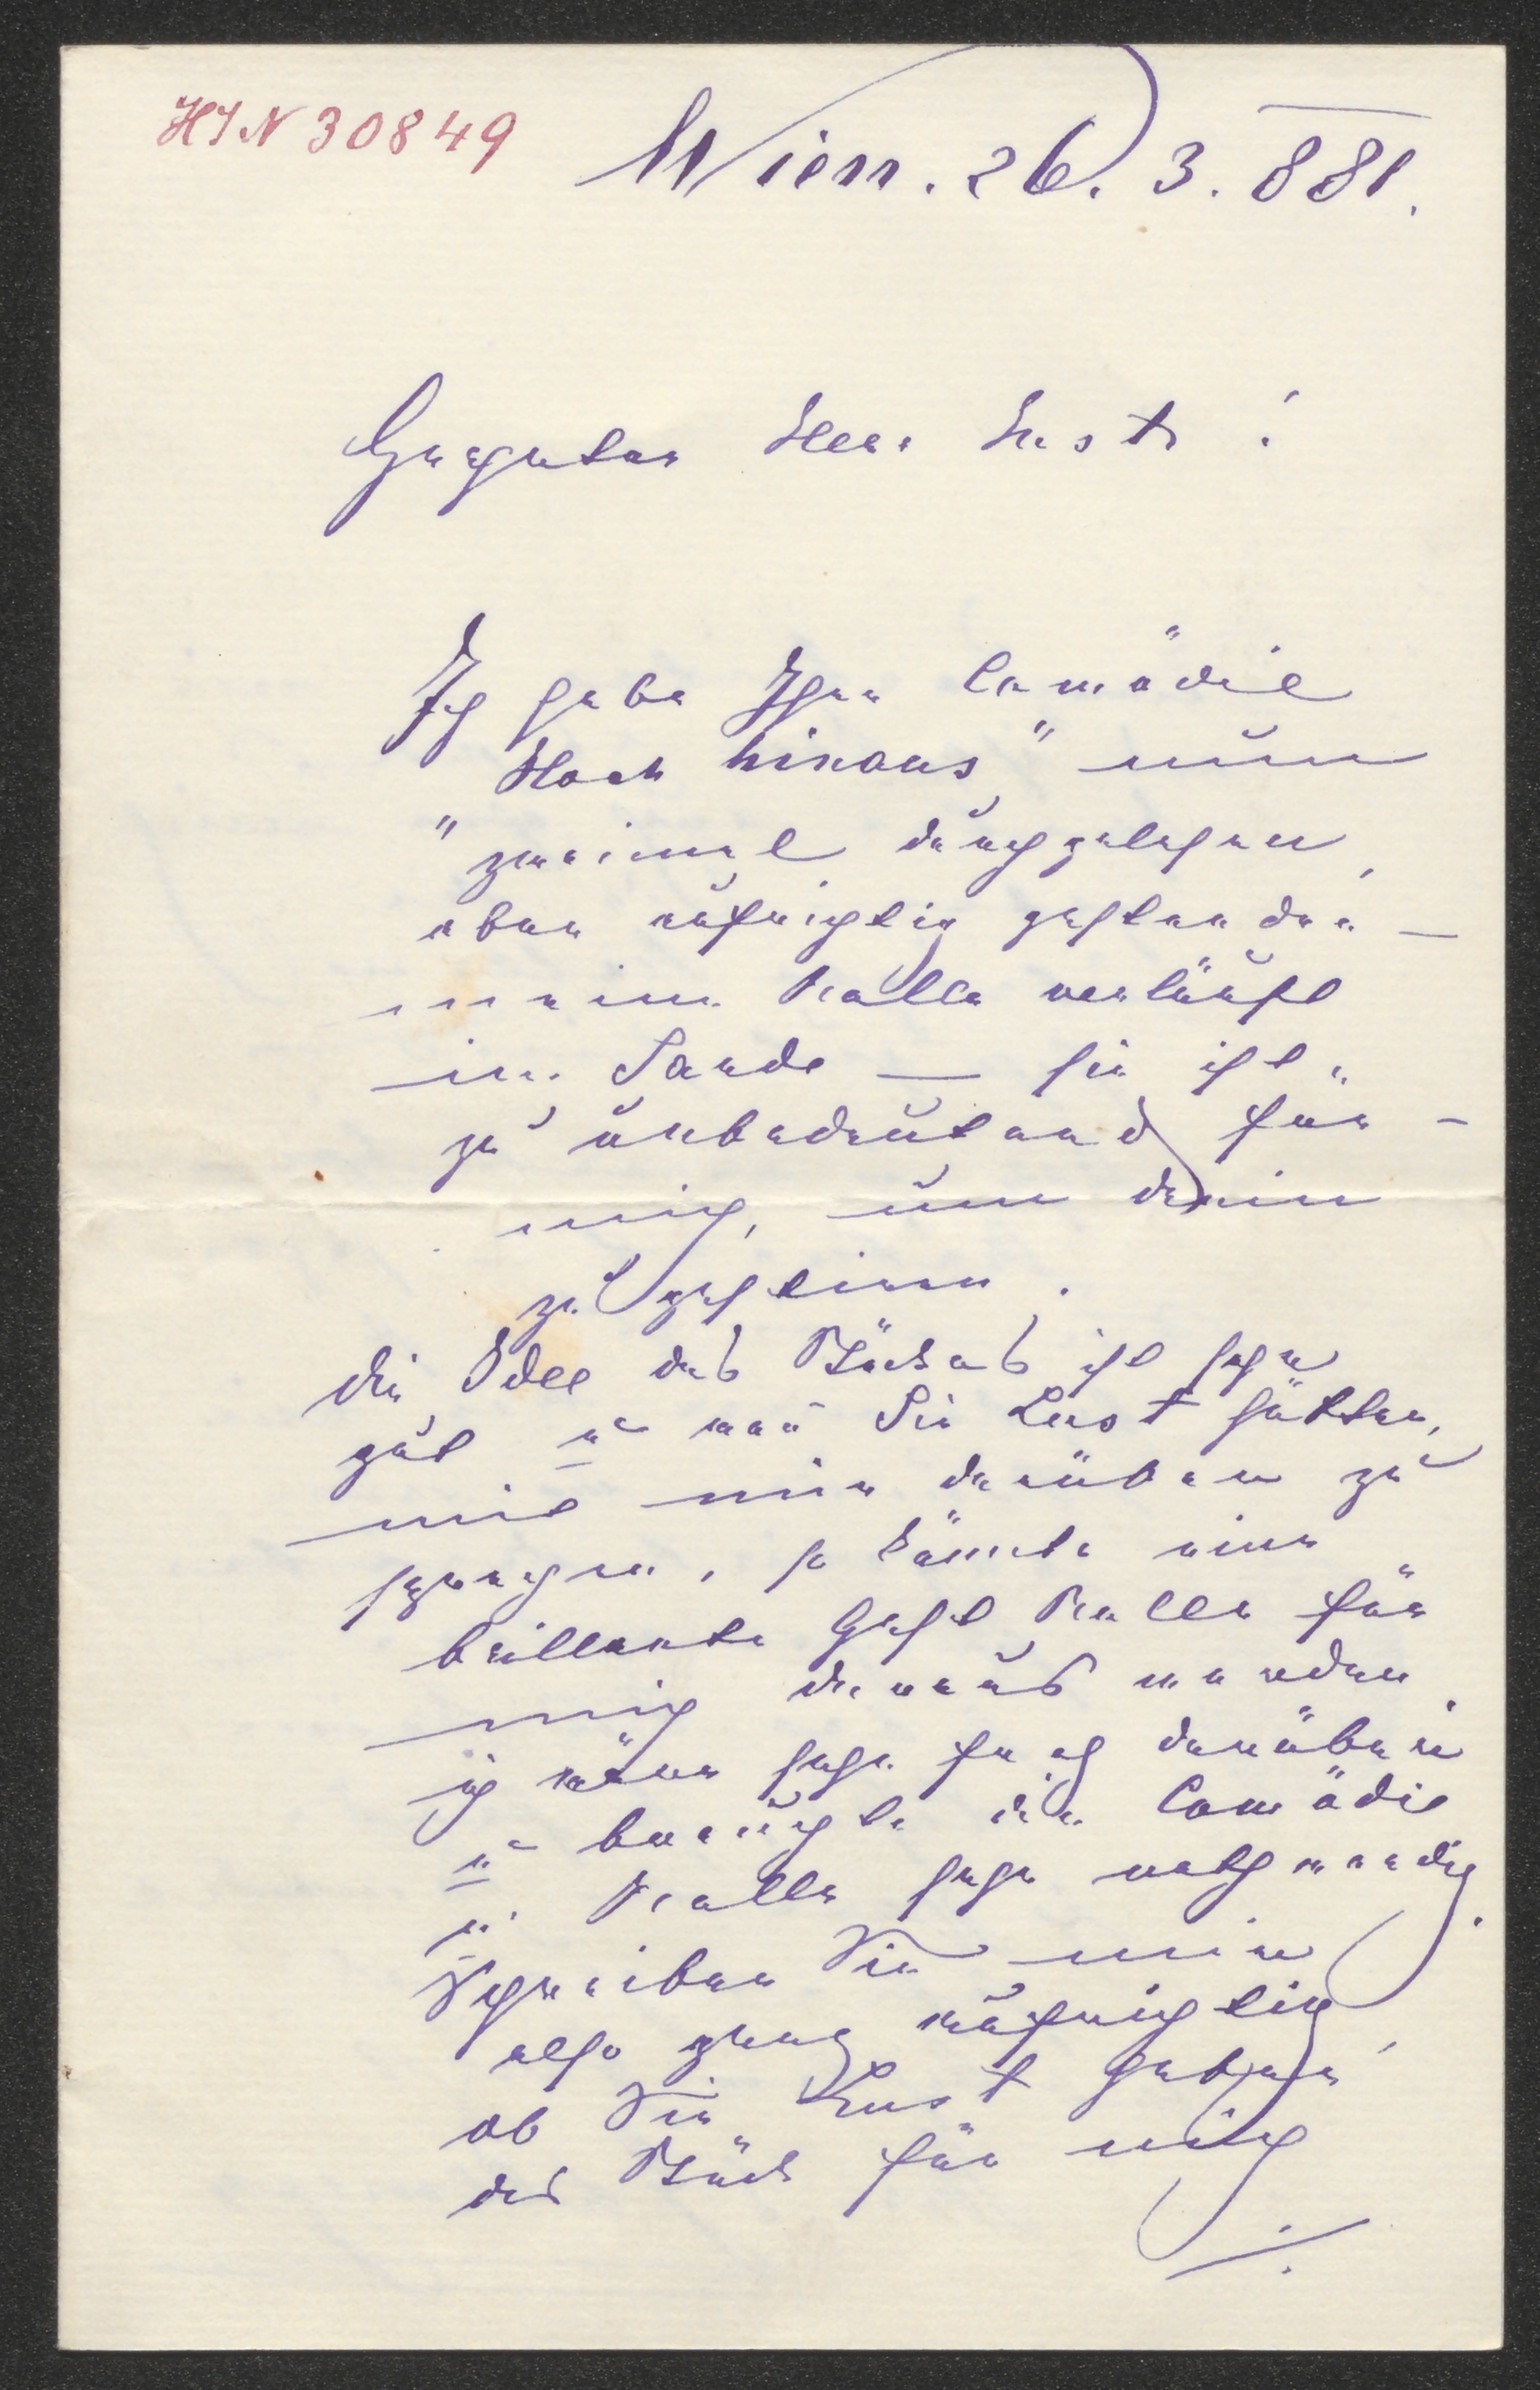 HIN 30849
Wien. 26. 3. 881.
Geehrter Herr
Ich habe Ihre Comödie
"Hoch hinaus" nun
zweimal durchgelesen,
aber aufrichtig gestanden –
meine Rolle verläuft
im Sande — sie ist
zu unbedeutend für
mich, um darin
zu gastiren.
Die Idee des Stückes ist sehr
gut u wenn Sie Lust hätten,
mit mir darüber zu
sprechen, so könnte eine
brillante Gast Rolle für
mich daraus werden.
ich wäre sehr froh darüber
u brauchte die Comödie
u. Rolle sehr nothwendig.
Schreiben Sie mir
also ganz aufrichtig,
ob Sie Lust haben
das Stück für mich
./.